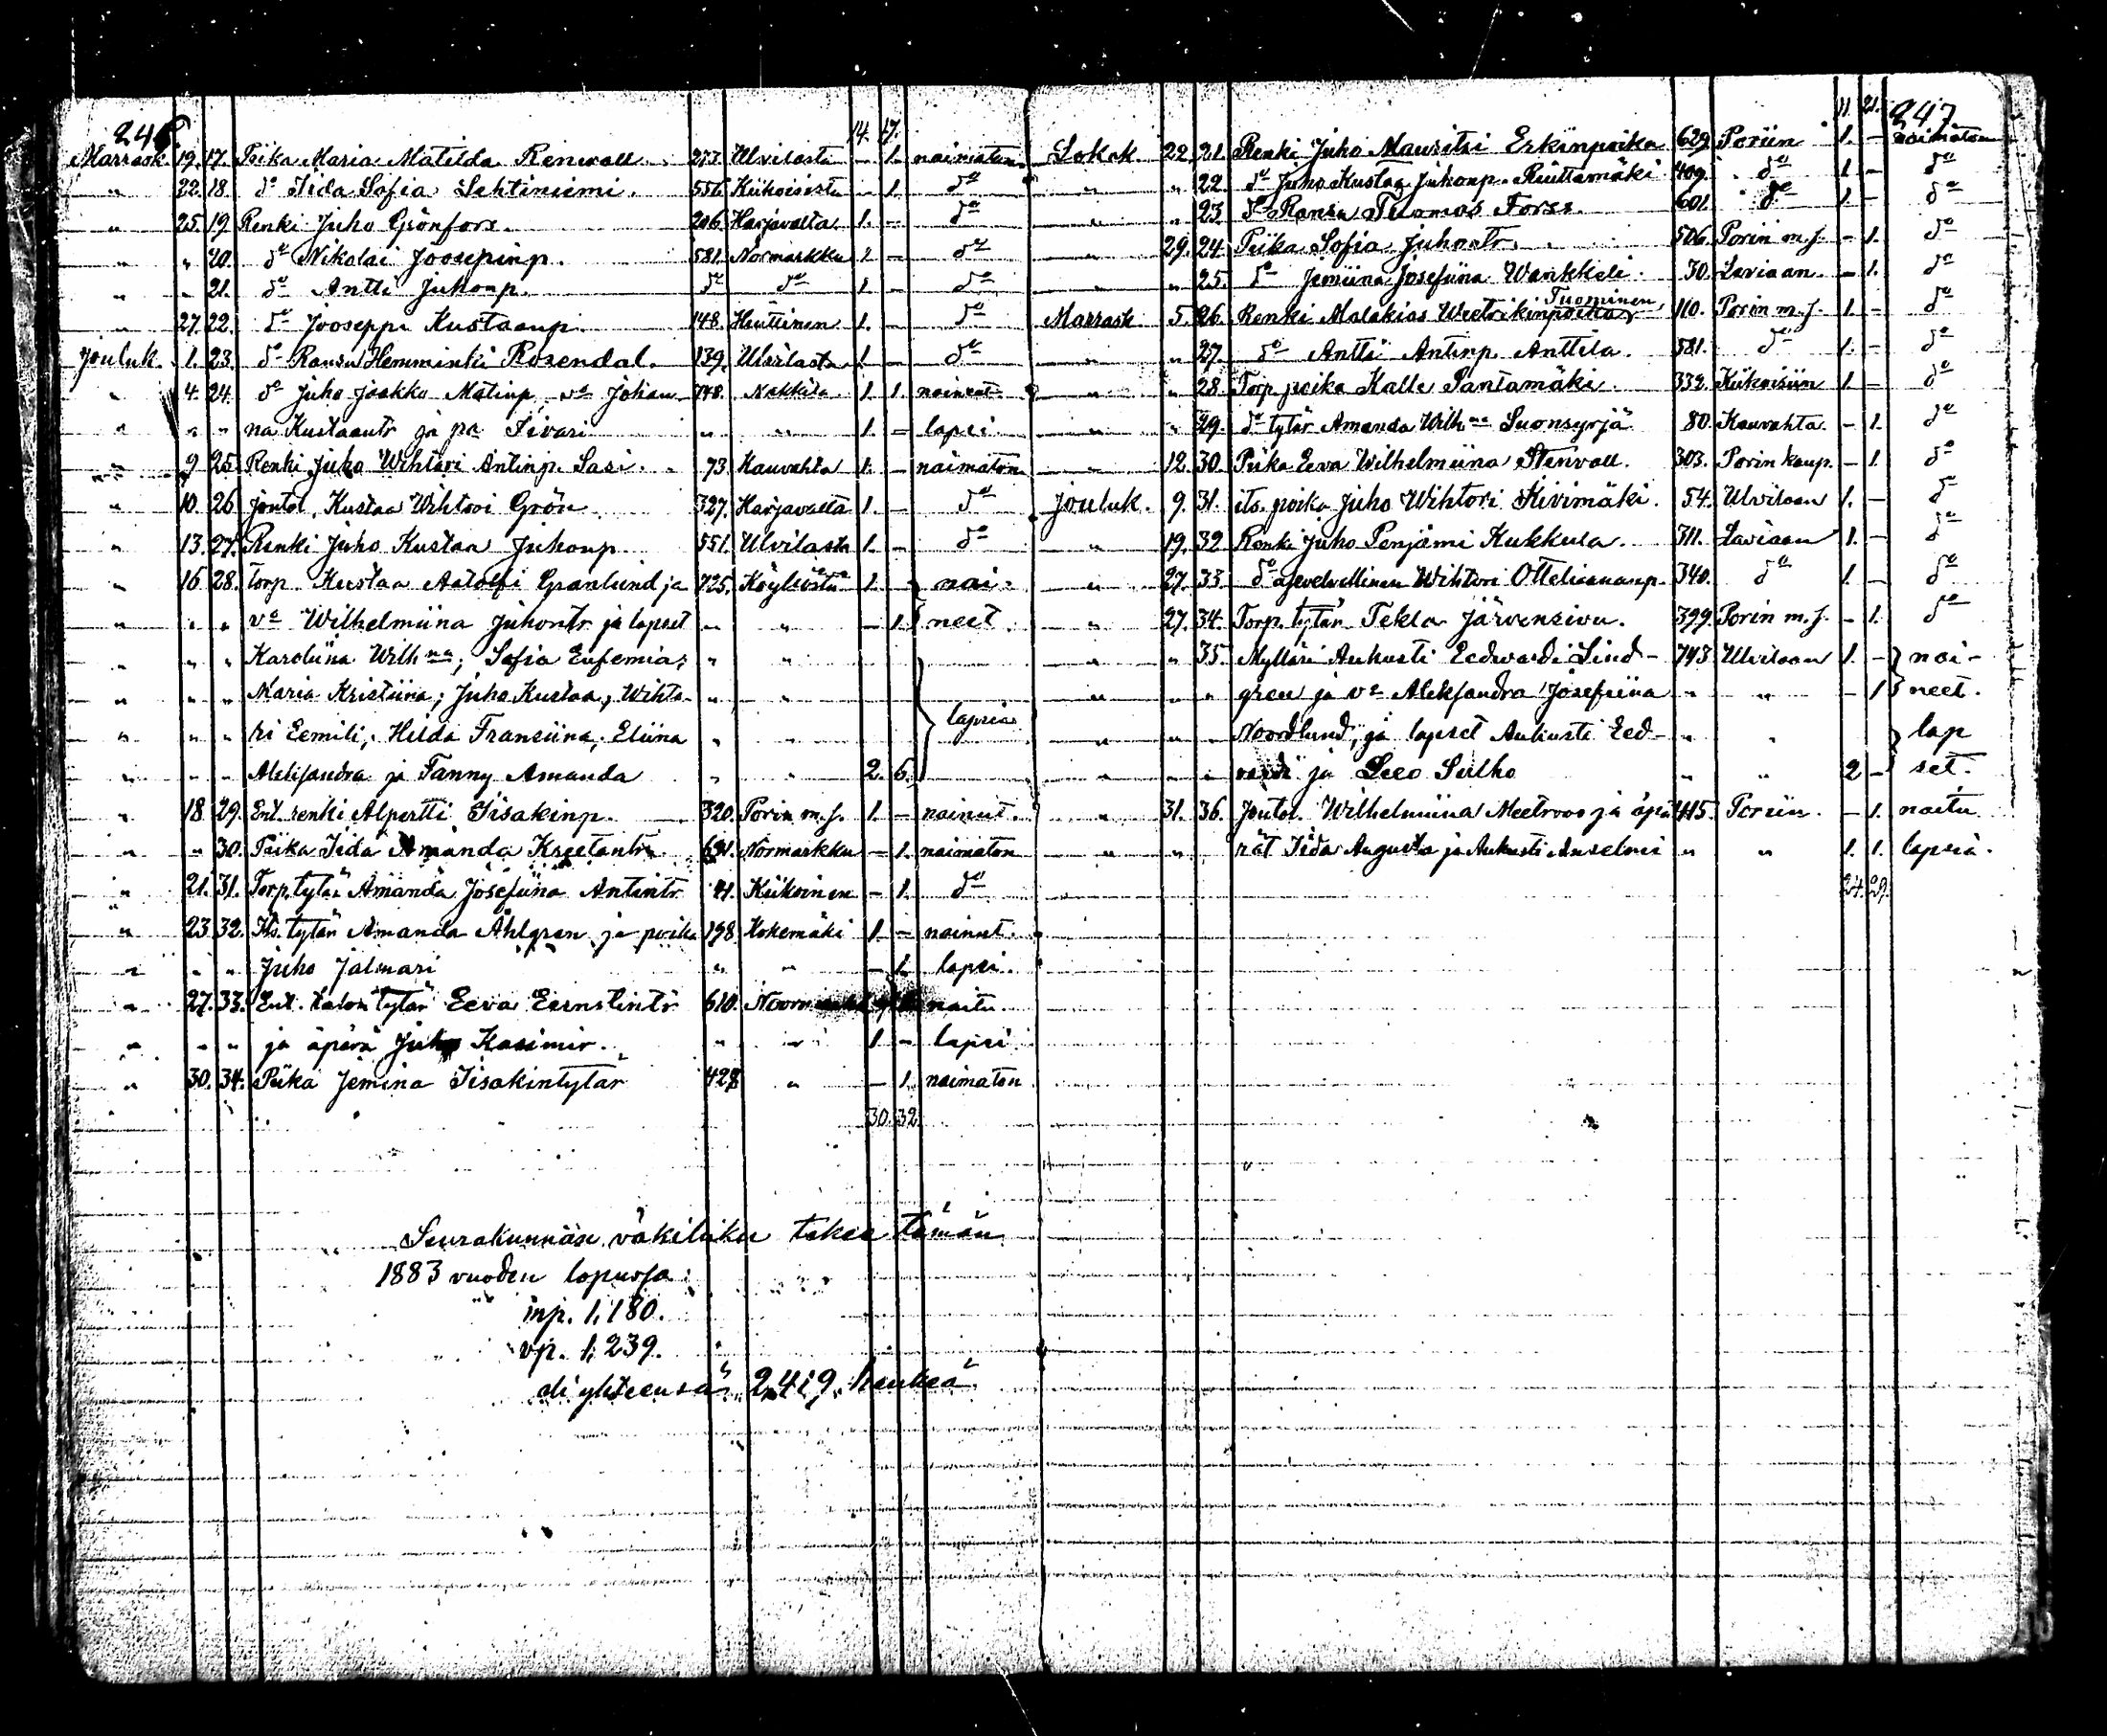 246.
14. 17.
Marrask. 19. 17. Piika Maria Matilda Renwall. 273. Ulvilasta — 1. naimaton
" 22. 18. do Iida Sofia Lehtiniemi. 556. Kiikoisista — 1. do
" 25. 19. Renki Juho Grönfors. 206. Harjavalta 1. — do
" " 20. do Nikolai Joosepinp. 581. Normarkku 1 — do
" " 21. do Antti Juhonp. do do 1 — do
" 27. 22. do Jooseppi Kustaanp. 148. Hiuttinen 1. — do
Jouluk. 1. 23. do Ransu Hemminki Rosendal. 139. Ulvilasta 1. — do
" 4. 24. do Juho Jaakko Matinp., vo Johan- 748. Nakkila 1. 1. naineet
" " " na Kustaantr ja pa Iivari " " 1. — lapsi
" 9 25. Renki Juho Wihtori Antinp. Sasi. 73. Kauvahta 1. — naimaton
" 10. 26 Joutol. Kustaa Wihtori Grön 327. Harjavalta 1. — do
" 13. 27. Renki Juho Kustaa Juhonp. 551. Ulvilasta 1. — do
" 16 28. Torp. Kustaa Aatolfi Granlund ja 725. Köyliöstä 1. — nai-
" " " vo Wilhelmiina Juhontr ja lapset " " — 1. neet.
" " " Karoliina Wilhna; Sofia Eufemia; " "
" " " Maria Kristiina; Juho Kustaa, Wihto- " " lapsia
" " " ri Eemili; Hilda Fransiina; Eliina " "
" " " Aleksandra ja Fanny Amanda " " 2. 6.
" 18 29. Ent. renki Alpertti Iisakinp. 320. Porin m.s. 1. — nainut.
" " 30. Piika Iida Amanda Kreetantr. 691. Normarkku — 1. naimaton
" 21. 31. Torp. tytär Amanda Josefiina Antintr 41. Kiikoinen — 1. do
" 23. 32. Its. tytär Amanda Ahlgren ja poika 198 Kokemäki 1. — nainut.
" " " Juho Jalmari " " — 1. lapsi.
" 27. 33. Ent. talon tytär Eeva Eernstintr 610. naitu.
" " " ja äpärä Juho Kasimir. " " 1. — lapsi.
" 30. 34. Piika Jemina Iisakintytär 428 " — 1. naimaton
30. 32.
Seurakunnan väkiluku tekee tämän
1883 vuoden lopussa:
mp. 1,180.
vp. 1,239.
eli yhteensä 2,419 henkeä
247
11. 21.
Lokak. 22. 21. Renki Juho Mauritsi Erkinpoika 629. Poriin 1. — naimaton
" " 22. do Juho Kustaa Juhonp. Riuttamäki 409. do 1 — do
" " 23. do Ransu Tuomas Forss. 601. do 1. — do
29. 24. Piika Sofia Juhontr. 506. Porin m.s. — 1. do
" " 25. do Jemiina Josefiina Wankkeli 30. Laviaan — 1. do
Tuominen
Marrask. 5. 26. Renki Malakias Weetrikinpoika 110. Porin m.s. 1. — do
" " 27. do Antti Antinp. Anttila. 581. do 1. — do
" " 28. Torp. poika Kalle Santamäki. 332. Kiikoisiin 1. — do
" " 29. do tytär Amanda Wilhna Suonsyrjä 80. Kauvahta — 1. do
" 12. 30. Piika Eeva Wilhelmiina Stenvall. 303. Porin kaup. — 1. do
Jouluk. 9. 31. its. poika Juho Wihtori Kivimäki. 54. Ulvilaan 1. — do
" 19. 32 Renki Juho Penjami Kukkula. 311. Laviaan 1. — do
" 27. 33. do Wihtori Otteliananp. 340. do 1. — do
" 27. 34. Torp. tytär Tekla Järvensivu. 399. Porin m.s. — 1. do
" " 35. Mylläri Aukusti Eedwardi Lind- 743 Ulvilaan 1. — nai-
" " " gren ja vo Aleksandra Josefiina " " — 1 neet.
" " " Noordlund, ja lapset Aukusti Eed- " " lap
" " " vardi ja Leeo Sulho " " 2 — set.
" 31. 36. Joutol. Wilhelmiina Meetroos ja äpä- 415. Poriin. — 1. naitu
" " rät Iida Augusta ja Aukusti Anselmi " " 1. 1. lapsia.
24. 29.